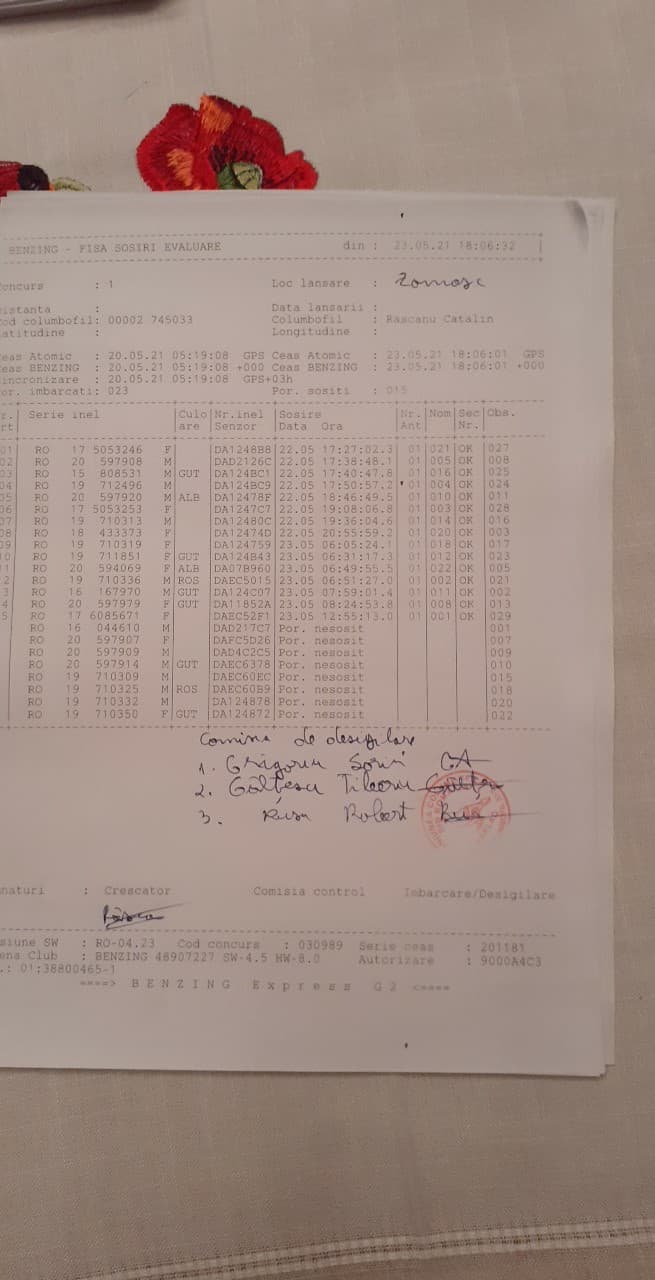 BENZING - FISA SOSIRI EVALUARE din : 23.05.21 18:06:32
oncurs : 1 Loc lansare : Zomosc
istanta : Data lansarii :
od columbofil: 00002 745033 Columbofil : Rascanu Catalin
atitudine : Longitudine :
eas Atomic : 20.05.21 05:19:08 GPS Ceas Atomic : 23.05.21 18:06:01 GPS
eas BENZING : 20.05.21 05:19:08 +000 Ceas BENZING : 23.05.21 18:06:01 +000
incronizare : 20.05.21 05:19:08 GPS+03h
or. imbarcati: 023 Por. sositi : 015
r. Serie inel Culo Nr.inel Sosire Nr. Nom Sec Obs.
rt are Senzor Data Ora Ant Nr.
01 RO 17 5053246 F DA1248B8 22.05 17:27:02.3 01 021 OK 027
02 RO 20 597908 M DAD2126C 22.05 17:38:48.1 01 005 OK 008
03 RO 15 808531 M GUT DA124BC1 22.05 17:40:47.8 01 016 OK 025
04 RO 19 712496 M DA124BC9 22.05 17:50:57.2 01 004 OK 024
05 RO 20 597920 M ALB DA12478F 22.05 18:46:49.5 01 010 OK 011
06 RO 17 5053253 F DA1247C7 22.05 19:08:06.8 01 003 OK 028
07 RO 19 710313 M DA12480C 22.05 19:36:04.6 01 014 OK 016
08 RO 18 433373 F DA12474D 22.05 20:55:59.2 01 020 OK 003
09 RO 19 710319 F DA124759 23.05 06:05:24.1 01 018 OK 017
10 RO 19 711851 F GUT DA124B43 23.05 06:31:17.3 01 012 OK 023
1 RO 20 594069 F ALB DA07B960 23.05 06:49:55.5 01 022 OK 005
2 RO 19 710336 M ROS DAEC5015 23.05 06:51:27.0 01 002 OK 021
3 RO 16 167970 M GUT DA124C07 23.05 07:59:01.4 01 011 OK 002
4 RO 20 597979 F GUT DA11852A 23.05 08:24:53.8 01 008 OK 013
5 RO 17 6085671 F DAEC52F1 23.05 12:55:13.0 01 001 OK 029
RO 16 044610 M DAD217C7 Por. nesosit 001
RO 20 597907 F DAFC5D26 Por. nesosit 007
RO 20 597909 M DAD4C2C5 Por. nesosit 009
RO 20 597914 M GUT DAEC6378 Por. nesosit 010
RO 19 710309 M DAEC60EC Por. nesosit 015
RO 19 710325 M ROS DAEC60B9 Por. nesosit 018
RO 19 710332 M DA124878 Por. nesosit 020
RO 19 710350 F GUT DA124872 Por. nesosit 022
de desigilare
1. Grigoriu Sorin
2.
3. Robert
naturi : Crescator Comisia control Imbarcare/Desigilare
siune SW : RO-04.23 Cod concurs : 030989 Serie ceas : 201181
ena Club : BENZING 48907227 SW-4.5 HW-8.0 Autorizare : 9000A4C3
.: 01:38800465-1
====> BENZING Express G2 <====